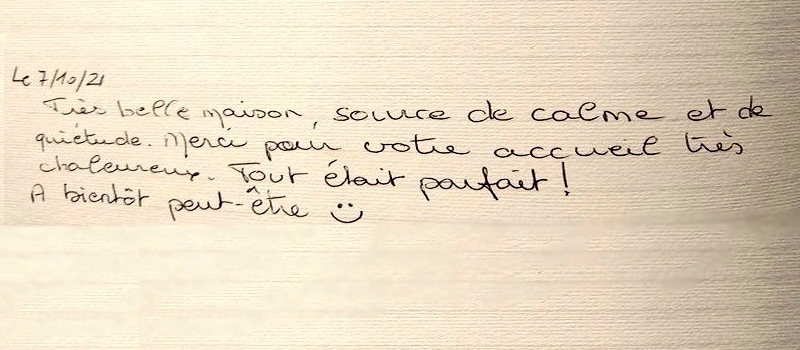 Le 7/10/21
Très belle maison, source de calme et de
quiétude. Merci pour votre accueil très
chaleureux. Tout était parfait !
A bientôt peut-être :)